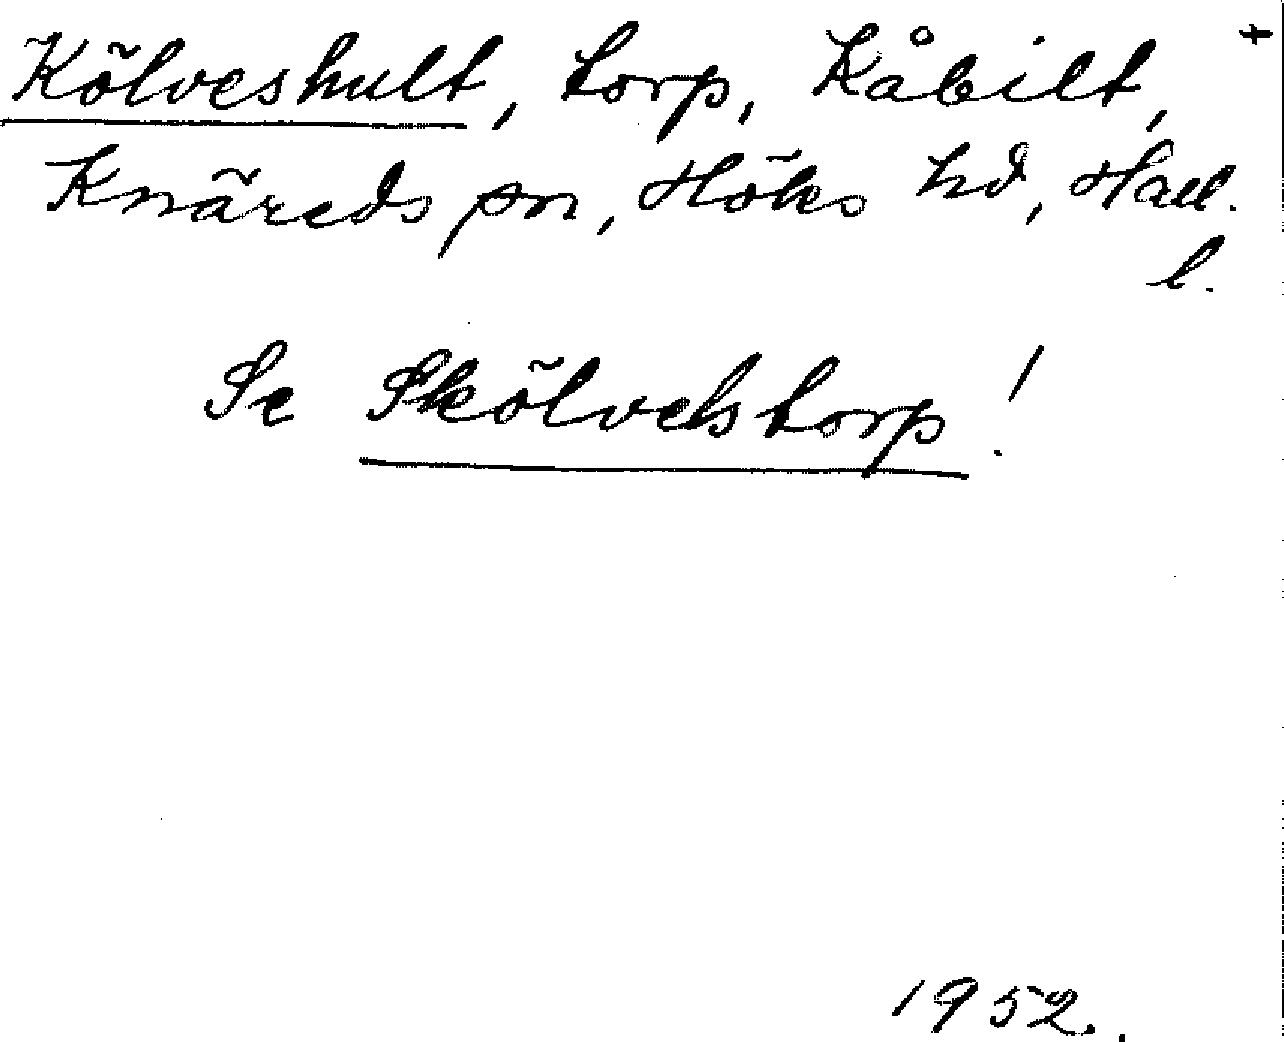 Kölveshult, torp, Kåbilt, +
Knäreds sn, Höks hd, Hall.
l.
Se Skölvelstorp!
1952.